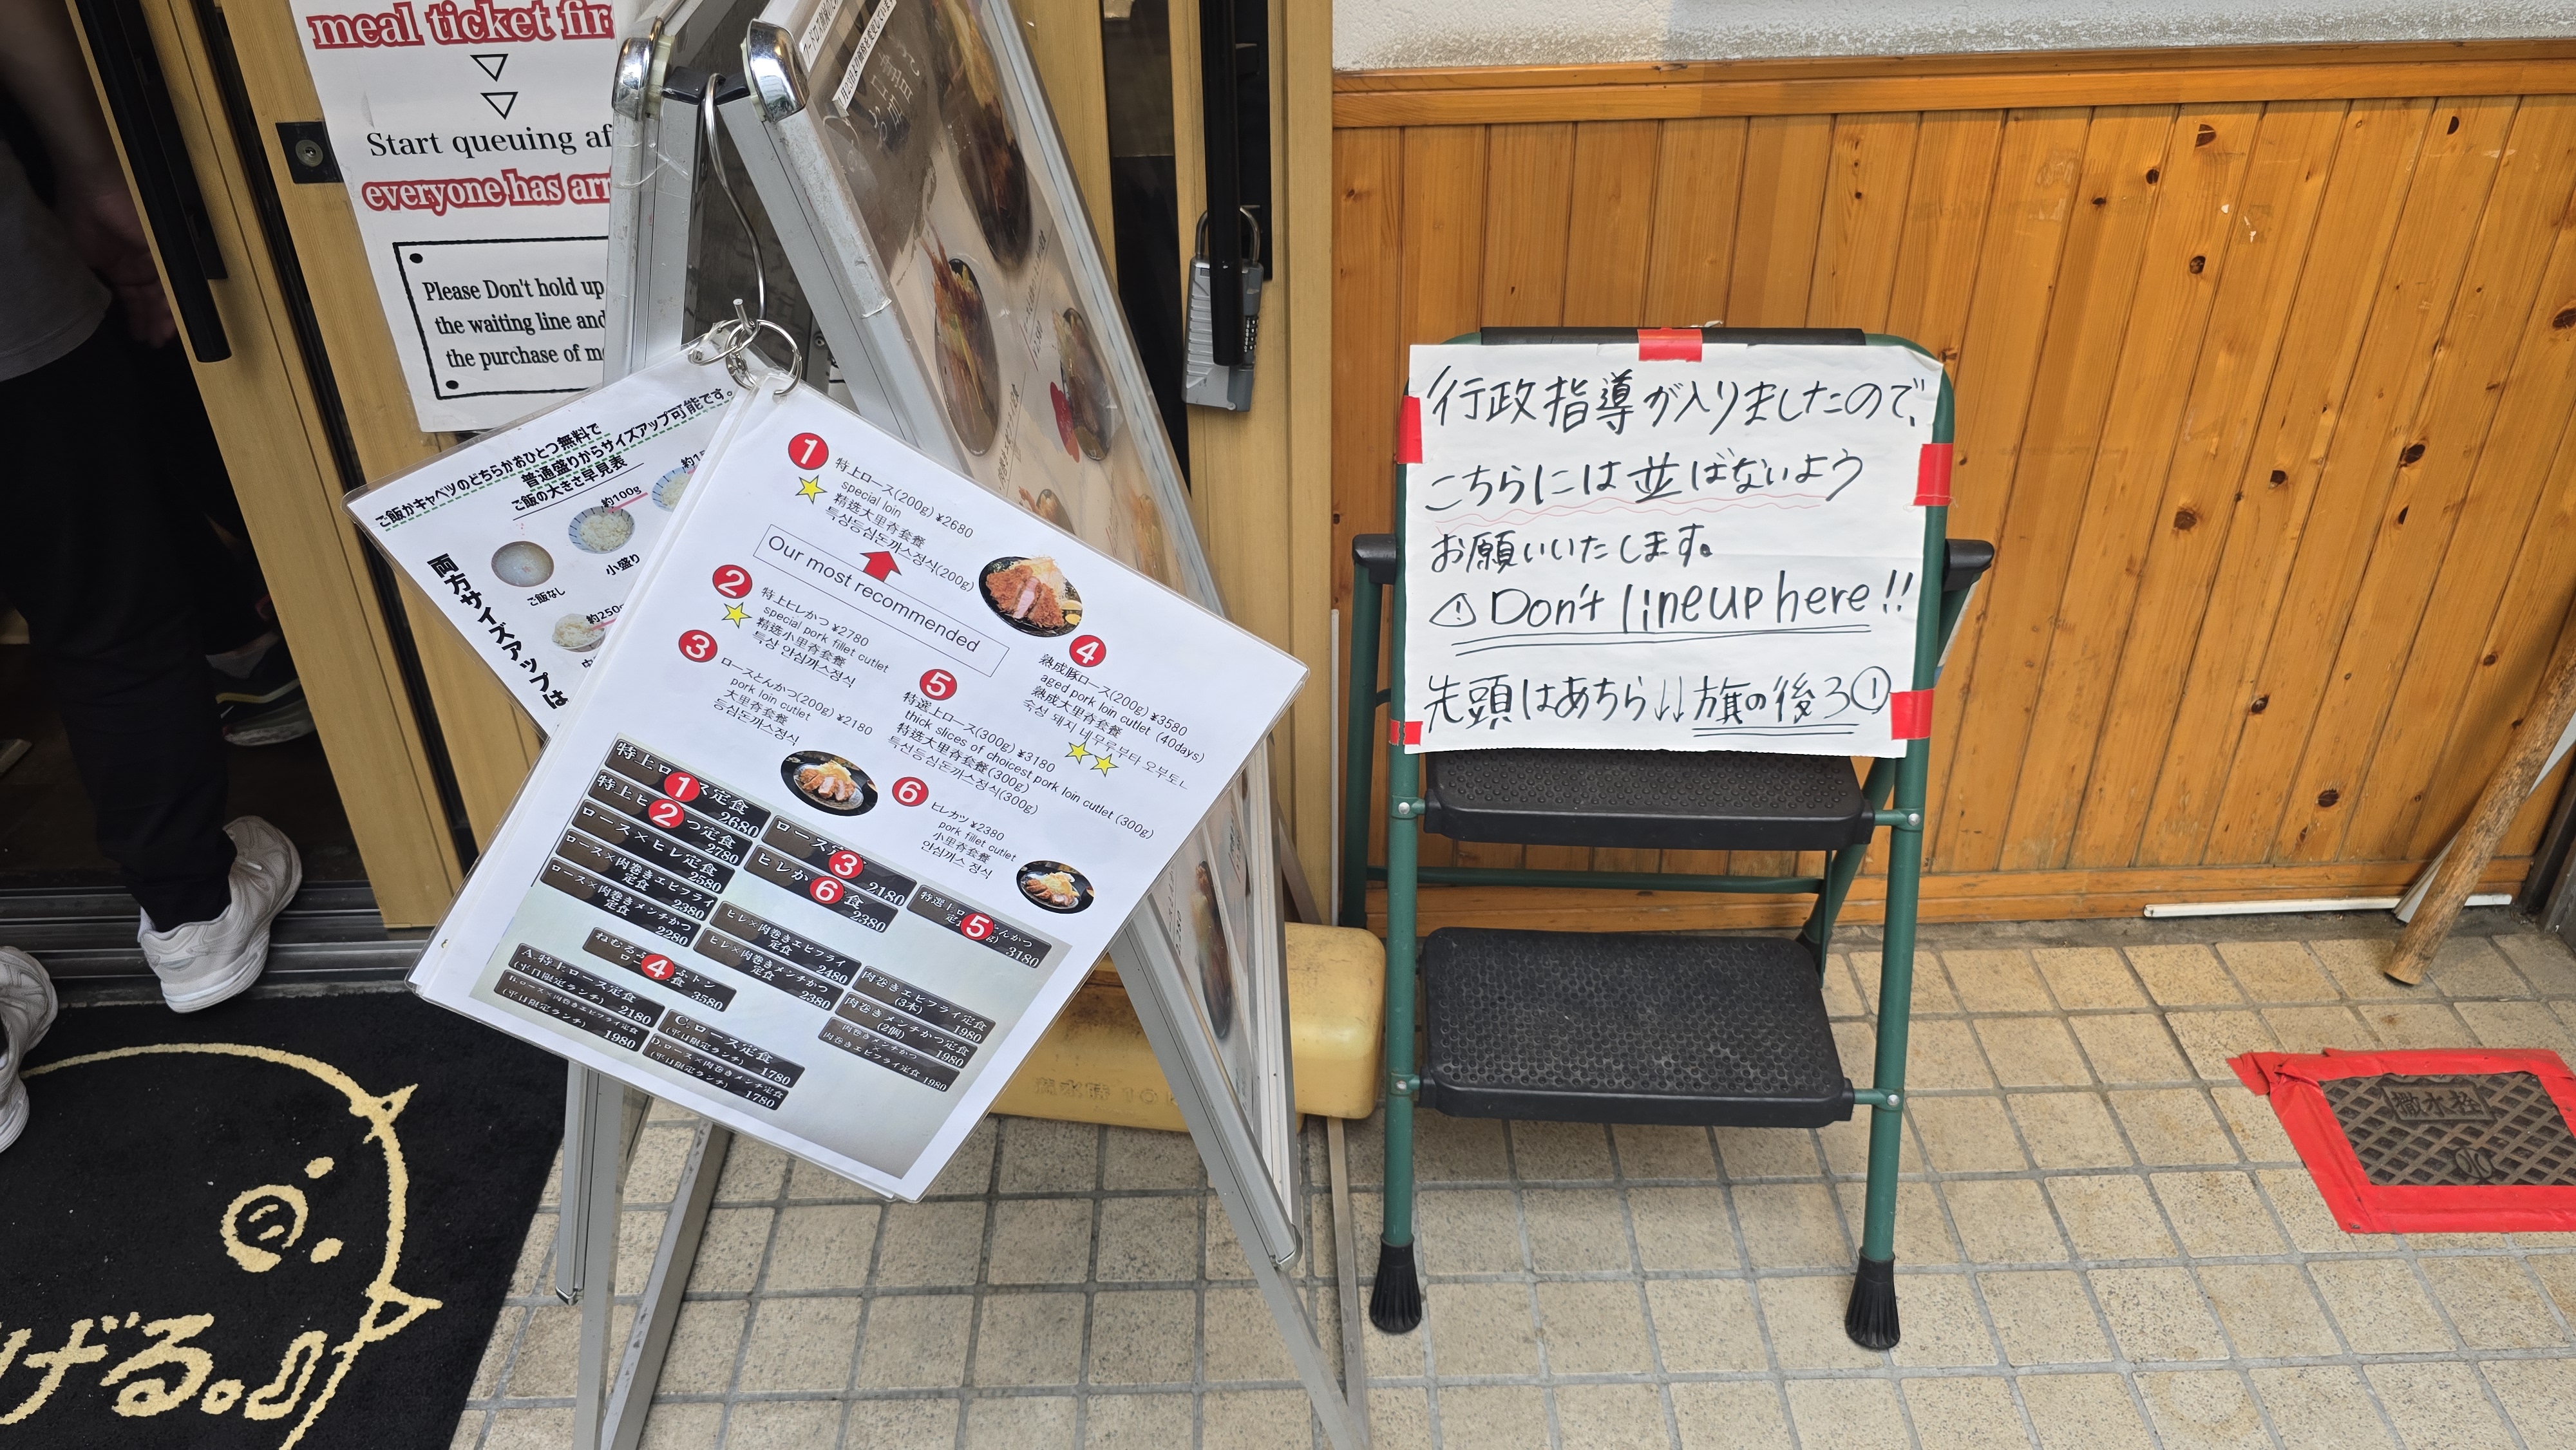 meal ticket
Start queuing
everyone has
Please Don't hold up
the waiting line and
the purchase of
ご飯かキャベツのどちらかおひとつ無料で
普通盛りからサイズアップ可能です。
ご飯の大きさ早見表
約100g
ご飯なし
小盛り
約250g
両方サイズアップは
1
特上ロース(200g) ¥2680
special loin
精选大里脊套餐
특상등심돈까스정식(200g)
Our most recommended
2
特上ヒレかつ ¥2780
special pork fillet cutlet
精选小里脊套餐
특상 안심까스정식
3
ロースとんかつ(200g) ¥2180
pork loin cutlet
大里脊套餐
등심돈까스정식
4
熟成豚ロース(200g) ¥3580
aged pork loin cutlet (40days)
熟成大里脊套餐
숙성 돼지 네무루부타 오부토
5
特選上ロース(300g) ¥3180
thick slices of choicest pork loin cutlet (300g)
特选大里脊套餐(300g)
특선등심돈까스정식(300g)
6
ヒレカツ ¥2380
pork fillet cutlet
小里脊套餐
안심까스 정식
特上ロ 1 ス定食
2680
特上ヒ 2 つ定食
2780
ロース×ヒレ定食
2580
ロース×肉巻きエビフライ
定食 2380
ロース×肉巻きメンチかつ
定食 2280
ロース 3
2180
ヒレか 6 食
2380
ヒレ×肉巻きエビフライ
定食 2480
ヒレ×肉巻きメンチかつ
定食 2380
特選上ロ 5 んかつ
3180
ねむるぶ 4 トン
ロー 食 3580
肉巻きエビフライ定食
(3本) 1980
肉巻きメンチかつ定食
(2個) 1980
肉巻きメンチかつ
肉巻きエビフライ定食 1980
A.特上ロース定食
(平日限定ランチ) 2180
B.ロース×肉巻きエビフライ定食
(平日限定ランチ) 1980
C.ロース定食
(平日限定ランチ) 1780
D.ロース×肉巻きメンチ定食
(平日限定ランチ) 1780
行政指導が入りましたので、
こちらには並ばないよう
お願いいたします。
⚠ Don't line up here!!
先頭はあちら↓↓旗の後ろ①
げる。
撒水栓